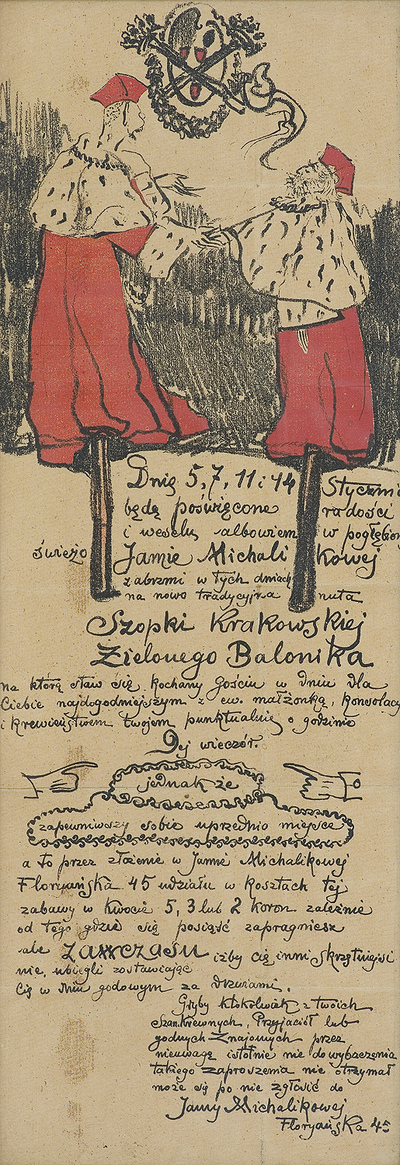 Dnie 5, 7, 11 i 14 Styczni
będą poświęcone radości
i weselu albowiem w pogłębion
świeżo Jamie Michalikowej
zabrzmi w tych dniach
na nowo tradycyjna nuta
Szopki Krakowskiej
Zielonego Balonika
na którą staw się, Kochany Gościu w dniu dla
Ciebie najdogodniejszym z ew. małżonką, konsolacy
i krewieństwem twojem punktualnie o godzinie
9ej wieczór.
jednak że
zapewniwszy sobie uprzednio miejsce
a to przez złożenie w Jamie Michalikowej
Floryańska 45 udziału w kosztach tej
zabawy w kwocie 5, 3 lub 2 koron zależnie
od tego gdzie się posiąść zapragniesz
ale zawczasu iżby cię inni skrzętniejsi
nie ubiegli zostawiając
Cię w dniu godowym za drzwiami.
Gdyby ktokolwiek z twoich
Szan. Krewnych, Przyjaciół lub
godnych Znajomych przez
nieuwagę istotnie nie do wybaczenia
takiego zaproszenia nie otrzymał
może się po nie zgłosić do
Jamy Michalikowej
Floryańska 45